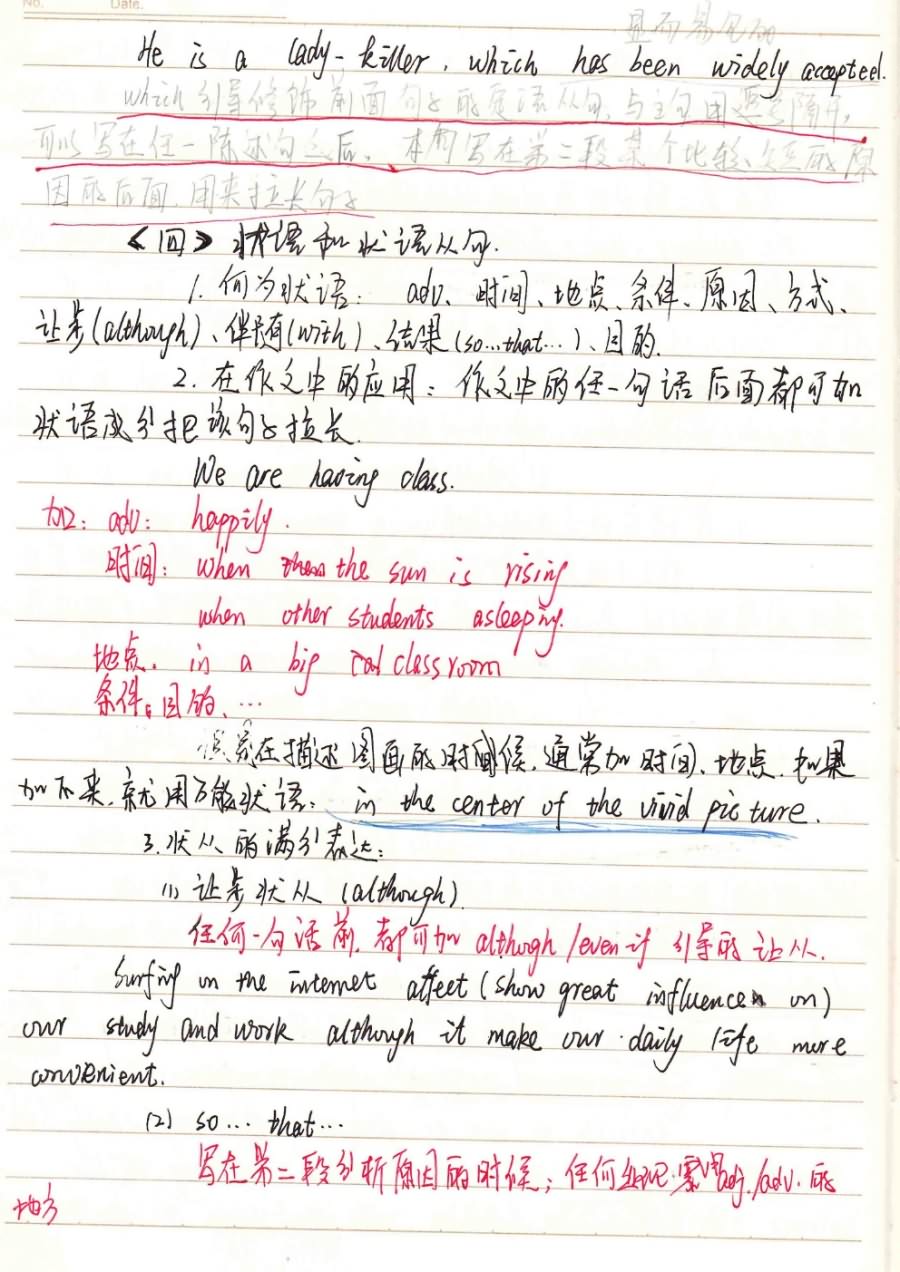 No. Date.
显而易见的
He is a lady-killer, which has been widely accepted.
which 引导修饰前面句子的定语从句,与主句用逗号隔开,
可以写在任一陈述句之后、本句写在第二段某个比较 的原
因的后面,用来拉长句子
<四> 状语和状语从句.
1. 何为状语: adv、时间、地点、条件、原因、方式、
让步(although)、伴随(with)、结果(so...that...)、目的.
2. 在作文中的应用:作文中的任一句话后面都可加
状语成分把该句子拉长.
We are having class.
加: adv: happily.
时间: when the sun is rising
when other students asleeping.
地点. in a big classroom
条件、目的、...
在描述图画的时候,通常加时间、地点.如果
加不来,就用万能状语: in the center of the vivid picture.
3. 状从的满分表达:
(1) 让步状从 (although).
任何一句话前,都可加 although /even if 引导的让从.
Surfing on the internet affect (show great influence on)
our study and work although it make our daily life more
convenient.
(2) so... that...
写在第二段分析原因的时候;任何出现 adj./adv. 的
地方